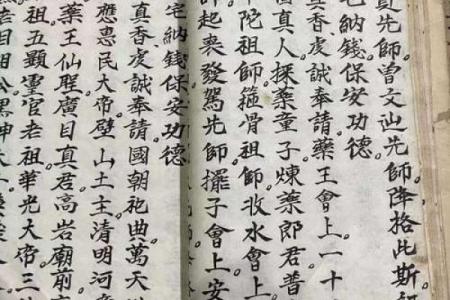 先師曾文辿先師。降格此斯。
宅納錢保安功德
真香虔誠奉請。藥王會上一十
真人。採藥童子煉藥郎君普
陀祖師箍骨祖師。收水會上
師起喪發駕先師。擺子會上安
宅納錢保安功德
真香虔誠奉請。國朝祀曲萬天
應惠民大帝。壁山土主清明河
藥王仙聖廣目真君。高岩廟前
祖五顯靈官老祖。華光大帝。三